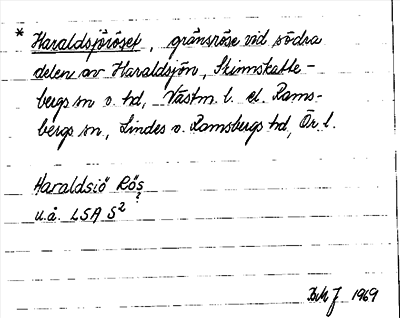 * Haraldsjöröset, gränsröse vid södra
delen av Haraldsjön, Skinnskatte-
bergs sn o. hd, Västm. l. el. Rams-
bergs sn, Lindes o. Ramsbergs hd, Ör. l.
Haraldsiö Rös
?
u.å. LSA S2
1969